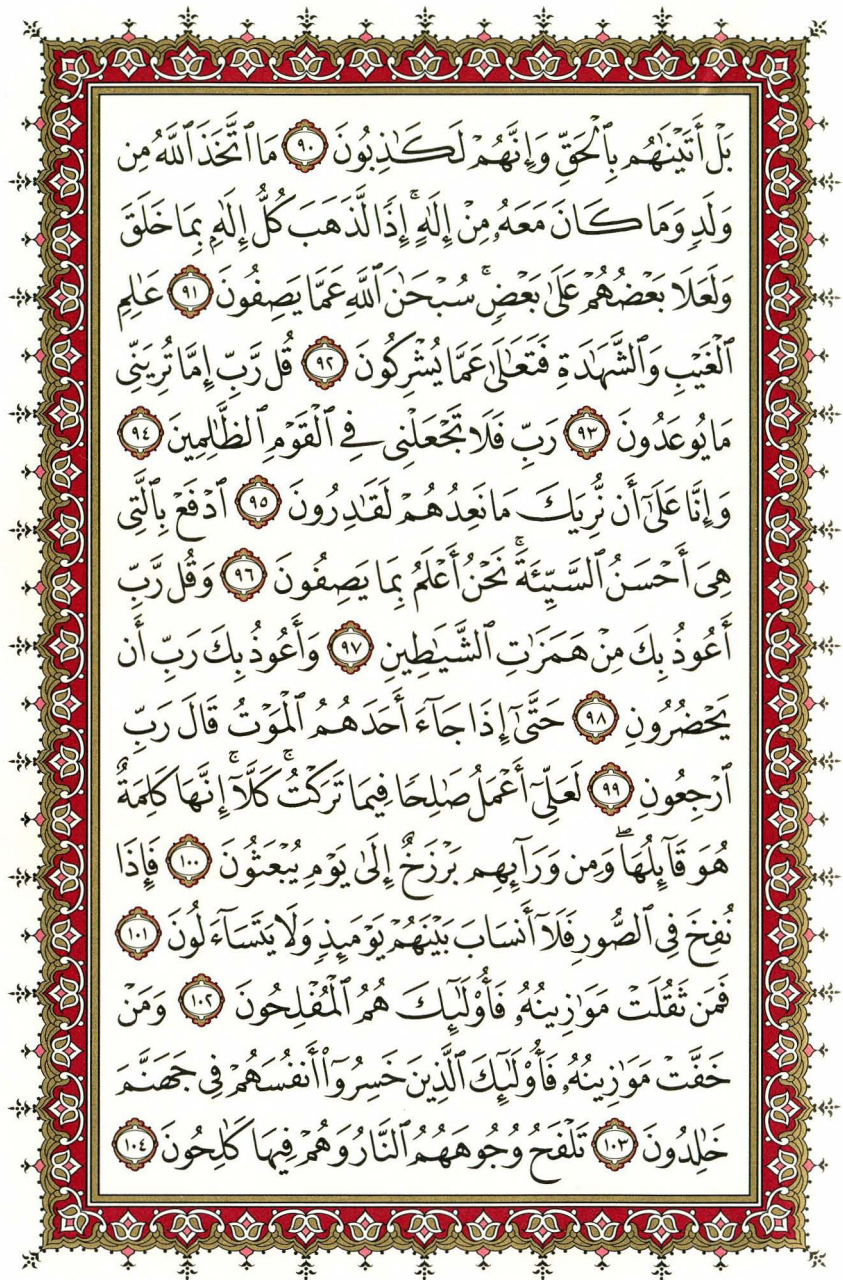 بَلْ أَتَيْنَٰهُم بِٱلْحَقِّ وَإِنَّهُمْ لَكَٰذِبُونَ ٩٠ مَا ٱتَّخَذَ ٱللَّهُ مِن
وَلَدٍ وَمَا كَانَ مَعَهُۥ مِنْ إِلَٰهٍ ۚ إِذًا لَّذَهَبَ كُلُّ إِلَٰهٍۭ بِمَا خَلَقَ
وَلَعَلَا بَعْضُهُمْ عَلَىٰ بَعْضٍ ۚ سُبْحَٰنَ ٱللَّهِ عَمَّا يَصِفُونَ ٩١ عَٰلِمِ
ٱلْغَيْبِ وَٱلشَّهَٰدَةِ فَتَعَٰلَىٰ عَمَّا يُشْرِكُونَ ٩٢ قُل رَّبِّ إِمَّا تُرِيَنِّى
مَا يُوعَدُونَ ٩٣ رَبِّ فَلَا تَجْعَلْنِى فِى ٱلْقَوْمِ ٱلظَّٰلِمِينَ ٩٤
وَإِنَّا عَلَىٰٓ أَن نُّرِيَكَ مَا نَعِدُهُمْ لَقَٰدِرُونَ ٩٥ ٱدْفَعْ بِٱلَّتِى
هِىَ أَحْسَنُ ٱلسَّيِّئَةَ ۚ نَحْنُ أَعْلَمُ بِمَا يَصِفُونَ ٩٦ وَقُل رَّبِّ
أَعُوذُ بِكَ مِنْ هَمَزَٰتِ ٱلشَّيَٰطِينِ ٩٧ وَأَعُوذُ بِكَ رَبِّ أَن
يَحْضُرُونِ ٩٨ حَتَّىٰٓ إِذَا جَآءَ أَحَدَهُمُ ٱلْمَوْتُ قَالَ رَبِّ
ٱرْجِعُونِ ٩٩ لَعَلِّىٓ أَعْمَلُ صَٰلِحًا فِيمَا تَرَكْتُ ۚ كَلَّآ ۚ إِنَّهَا كَلِمَةٌ
هُوَ قَآئِلُهَا ۖ وَمِن وَرَآئِهِم بَرْزَخٌ إِلَىٰ يَوْمِ يُبْعَثُونَ ١٠٠ فَإِذَا
نُفِخَ فِى ٱلصُّورِ فَلَآ أَنسَابَ بَيْنَهُمْ يَوْمَئِذٍ وَلَا يَتَسَآءَلُونَ ١٠١
فَمَن ثَقُلَتْ مَوَٰزِينُهُۥ فَأُو۟لَٰٓئِكَ هُمُ ٱلْمُفْلِحُونَ ١٠٢ وَمَنْ
خَفَّتْ مَوَٰزِينُهُۥ فَأُو۟لَٰٓئِكَ ٱلَّذِينَ خَسِرُوٓا۟ أَنفُسَهُمْ فِى جَهَنَّمَ
خَٰلِدُونَ ١٠٣ تَلْفَحُ وُجُوهَهُمُ ٱلنَّارُ وَهُمْ فِيهَا كَٰلِحُونَ ١٠٤